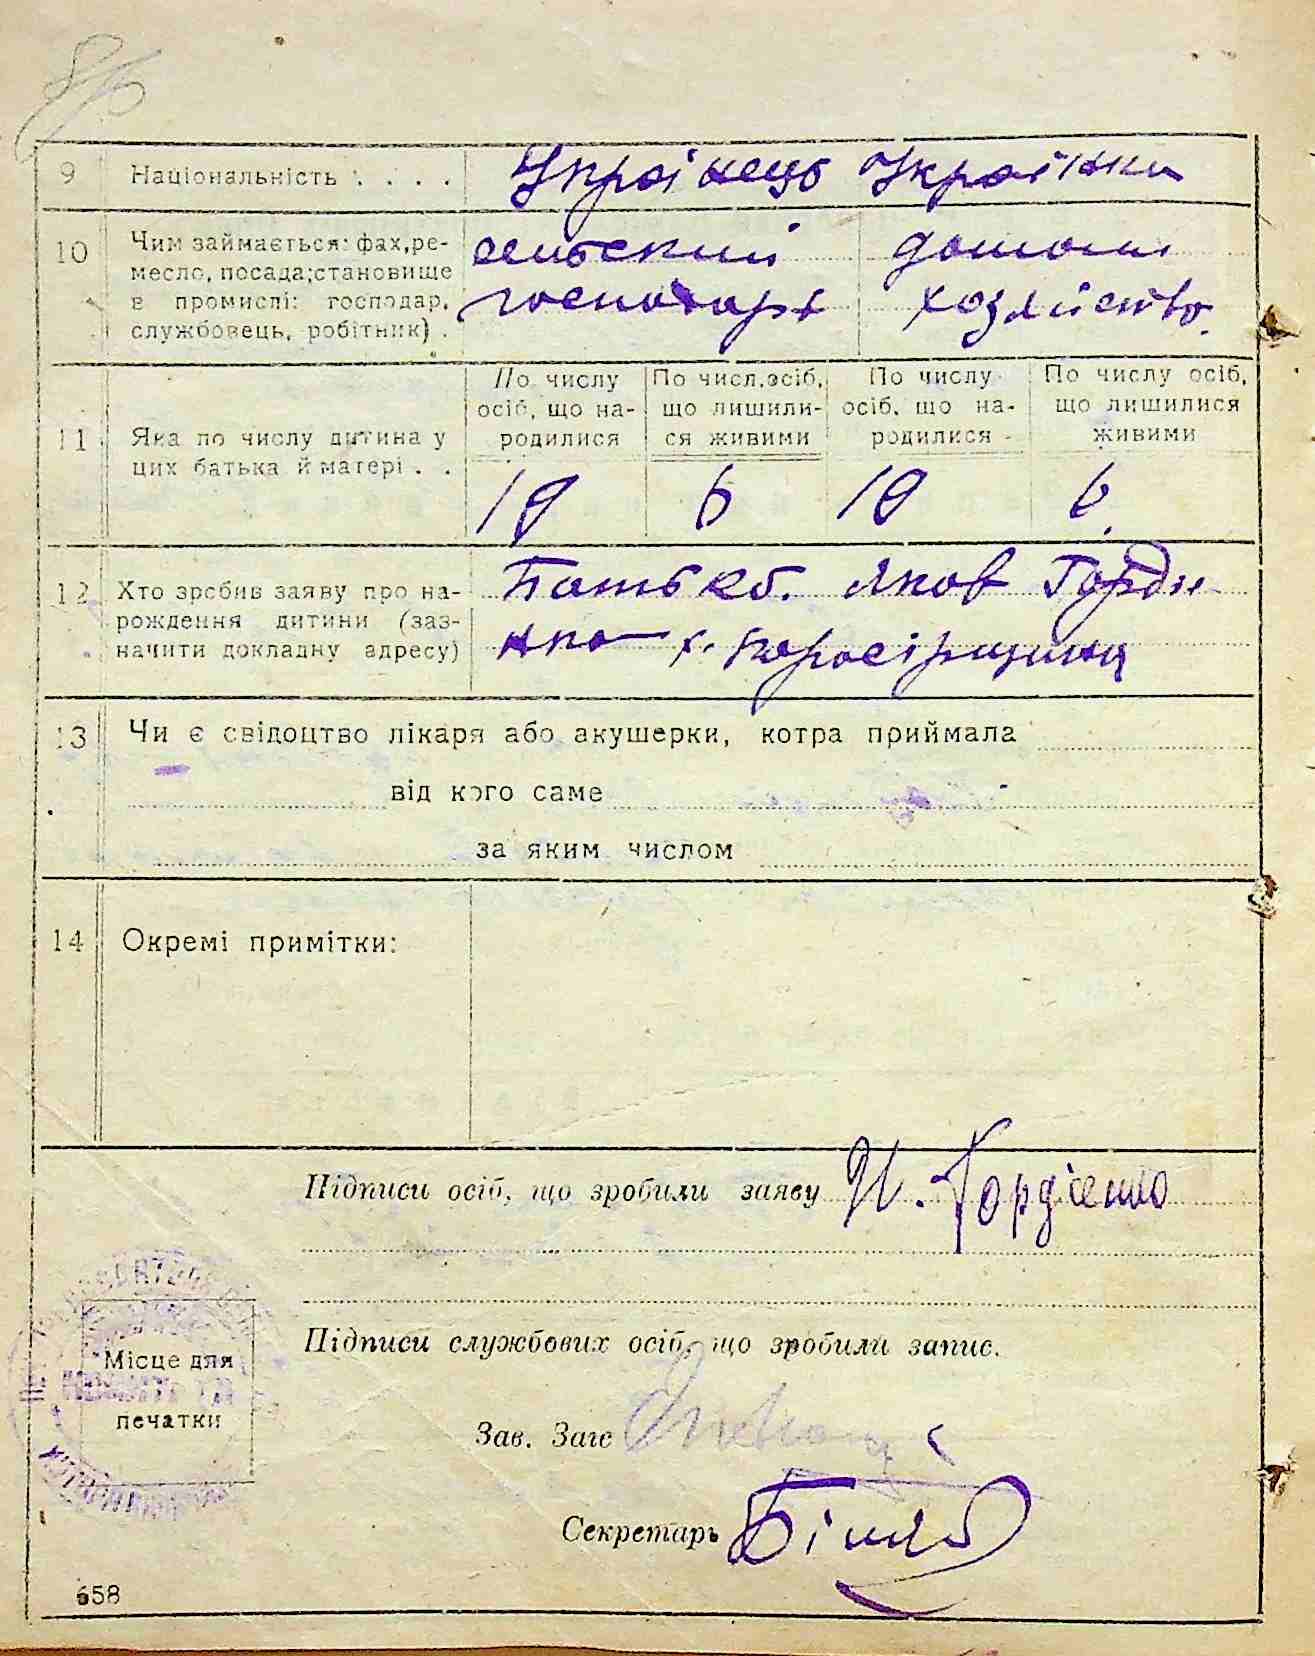 9 Національність . . . . Українець Українка
10 Чим займається: фах, ре- сельский домаш
месло, посада; становище господарь хозяйство.
в промислі: господар,
службовець, робітник) .
По числу По числ. осіб, По числу По числу осіб,
осіб, що на- що лишили- осіб, що на- що лишилися
родилися ся живими родилися живими
11 Яка по числу дитина у
цих батька й матері . . 10 6 10 6
12 Хто зробив заяву про на- Батько. Яков Горди
рождення дитини (заз- нко х.
начити докладну адресу)
13 Чи є свідоцтво лікаря або акушерки, котра приймала
від кого саме
за яким числом
14 Окремі примітки:
Підписи осіб, що зробили заяву И. Гордіенко
Підписи службових осіб, що зробили запис.
Місце для
печатки
Зав. Загс
Секретарь
658